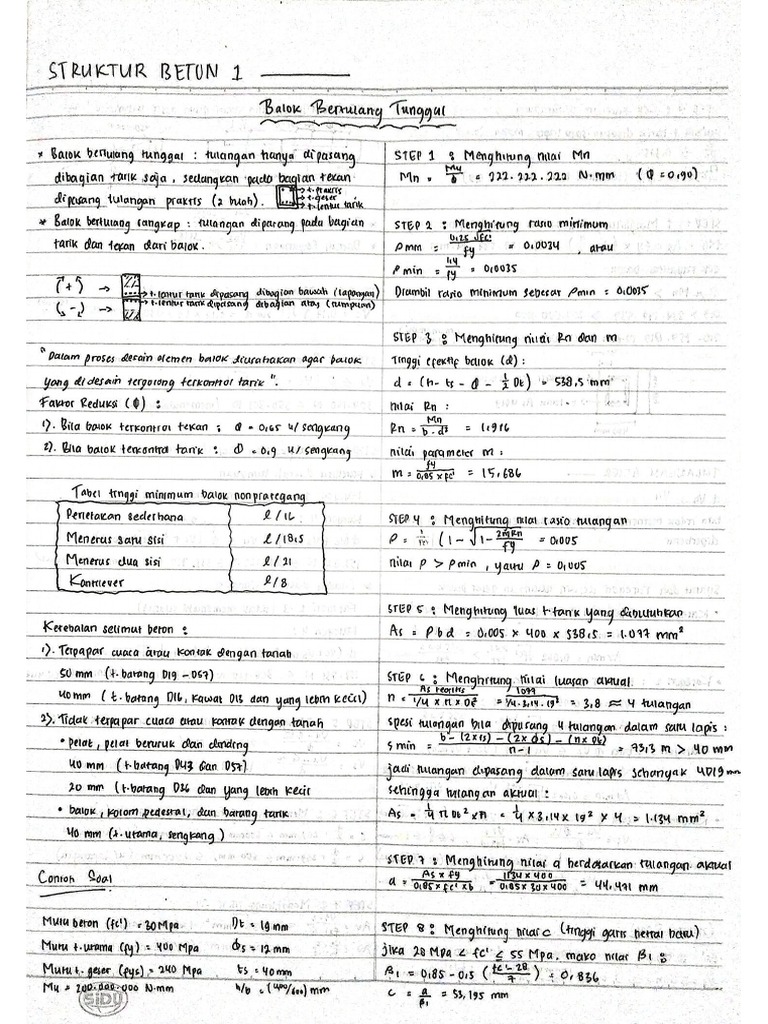 STRUKTUR BETON 1
Balok Bertulang Tunggal
* Balok bertulang tunggal : tulangan hanya dipasang
dibagian tarik saja, sedangkan pada bagian tekan
dipasang tulangan praktis (2 buah).
t. praktis
t. geser
t. lentur tarik
* Balok bertulang rangkap : tulangan dipasang pada bagian
tarik dan tekan dari balok.
(+) → t. lentur tarik dipasang dibagian bawah (lapangan)
(-) → t. lentur tarik dipasang dibagian atas (tumpuan)
"Dalam proses desain elemen balok diusahakan agar balok
yang di desain tergolong terkontrol tarik".
Faktor Reduksi (Φ) :
1). Bila balok terkontrol tekan : Φ = 0,65 u/ sengkang
2). Bila balok terkontrol tarik : Φ = 0,9 u/ sengkang
Tabel tinggi minimum balok nonprategang
Perletakan sederhana l/16
Menerus satu sisi l/18,5
Menerus dua sisi l/21
Kantilever l/8
Ketebalan selimut beton :
1). Terpapar cuaca atau kontak dengan tanah
50 mm (t. batang D19 - D57)
40 mm (t. batang D16, kawat D13 dan yang lebih kecil)
2). Tidak terpapar cuaca atau kontak dengan tanah
• pelat, pelat berusuk dan dinding
40 mm (t. batang D43 dan D57)
20 mm (t. batang D36 dan yang lebih kecil
• balok, kolom pedestal, dan batang tarik
40 mm (t. utama, sengkang)
Contoh Soal
Mutu beton (fc') = 30 Mpa Dt = 19 mm
Mutu t. utama (fy) = 400 Mpa øs = 12 mm
Mutu t. geser (fys) = 240 Mpa ts = 40 mm
Mu = 200.000.000 N·mm h/b = (400/600) mm
SiDU
STEP 1 : Menghitung nilai Mn
Mn = Mu/Φ = 222.222.222 N·mm (Φ = 0,90)
STEP 2 : Menghitung rasio minimum
ρ min = 0,25 √fc' / fy = 0,0034 , atau
ρ min = 1,4/fy = 0,0035
Diambil rasio minimum sebesar ρmin = 0,0035
STEP 3 : Menghitung nilai Rn dan m
Tinggi efektif balok (d) :
d = (h - ts - Φ - 1/2 Dt) = 538,5 mm
nilai Rn :
Rn = Mn / b·d² = 1,916
nilai parameter m :
m = fy / 0,85 x fc' = 15,686
STEP 4 : Menghitung nilai rasio tulangan
ρ = 1/m (1 - √1 - 2mRn/fy = 0,005
nilai ρ > ρmin , yaitu ρ = 0,005
STEP 5 : Menghitung luas t tarik yang dibutuhkan
As = ρ b d = 0,005 x 400 x 538,5 = 1.077 mm²
STEP 6 : Menghitung nilai luasan aktual
n = As teoritis / 1/4 x π x Dt² = 1077 / 1/4 . 3,14 . 19² = 3,8 ≈ 4 tulangan
spasi tulangan bila dipasang 4 tulangan dalam satu lapis :
s min = b - (2 x ts) - (2 x øs) - (n x Dt) / n - 1 = 73,3 m > 40 mm
jadi tulangan dipasang dalam satu lapis sebanyak 4D19 mm
sehingga tulangan aktual :
As = 1/4 π Dt² x n = 1/4 x 3,14 x 19² x 4 = 1.134 mm²
STEP 7 : Menghitung nilai a berdasarkan tulangan aktual
a = As x fy / 0,85 x fc' x b = 1134 x 400 / 0,85 x 30 x 400 = 44,471 mm
STEP 8 : Menghitung nilai c (tinggi garis netral baru)
jika 28 Mpa < fc' ≤ 55 Mpa, maka nilai β1 :
β1 = 0,85 - 0,5 (fc' - 28 / 7) = 0,836
c = a/β1 = 53,195 mm